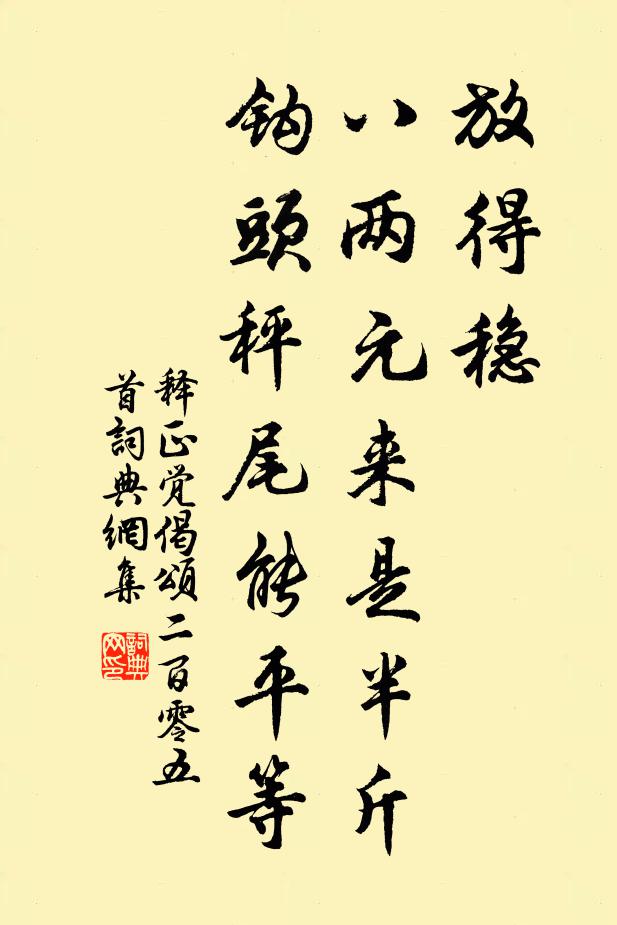 放得稳
八两元来是半斤
钩頭秤尾能平等
释正觉偈頌二百零五
首詞典網集
詞典网印